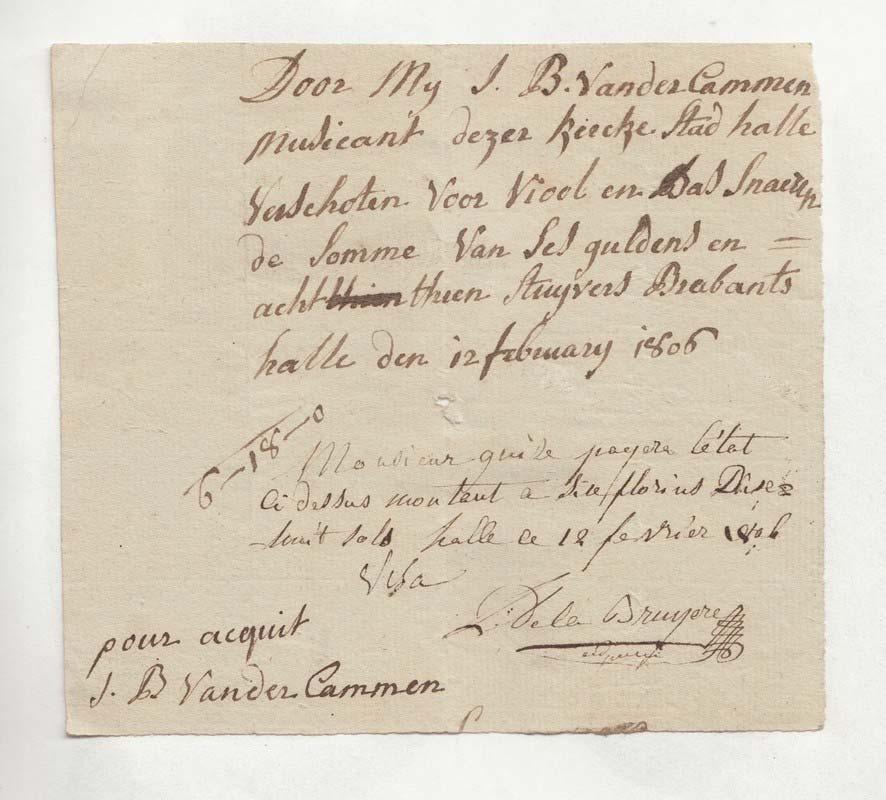 Door My J. B. Vander Cammen
Musicant dezer kercke Stad halle
Verschoten Voor Viool en Bas Snaeren
de Somme Van Ses guldens en =
acht thien thien Stuyvers Brabants
halle den 12 february 1806
6-18-0
Monsieur quize payera l'état
Ci dessus montant a Six florins Dixe=
huit Sols halle ce 12 fevrier 1806
Visa
De la Bruyere
pour acquit
J. B Vander Cammen